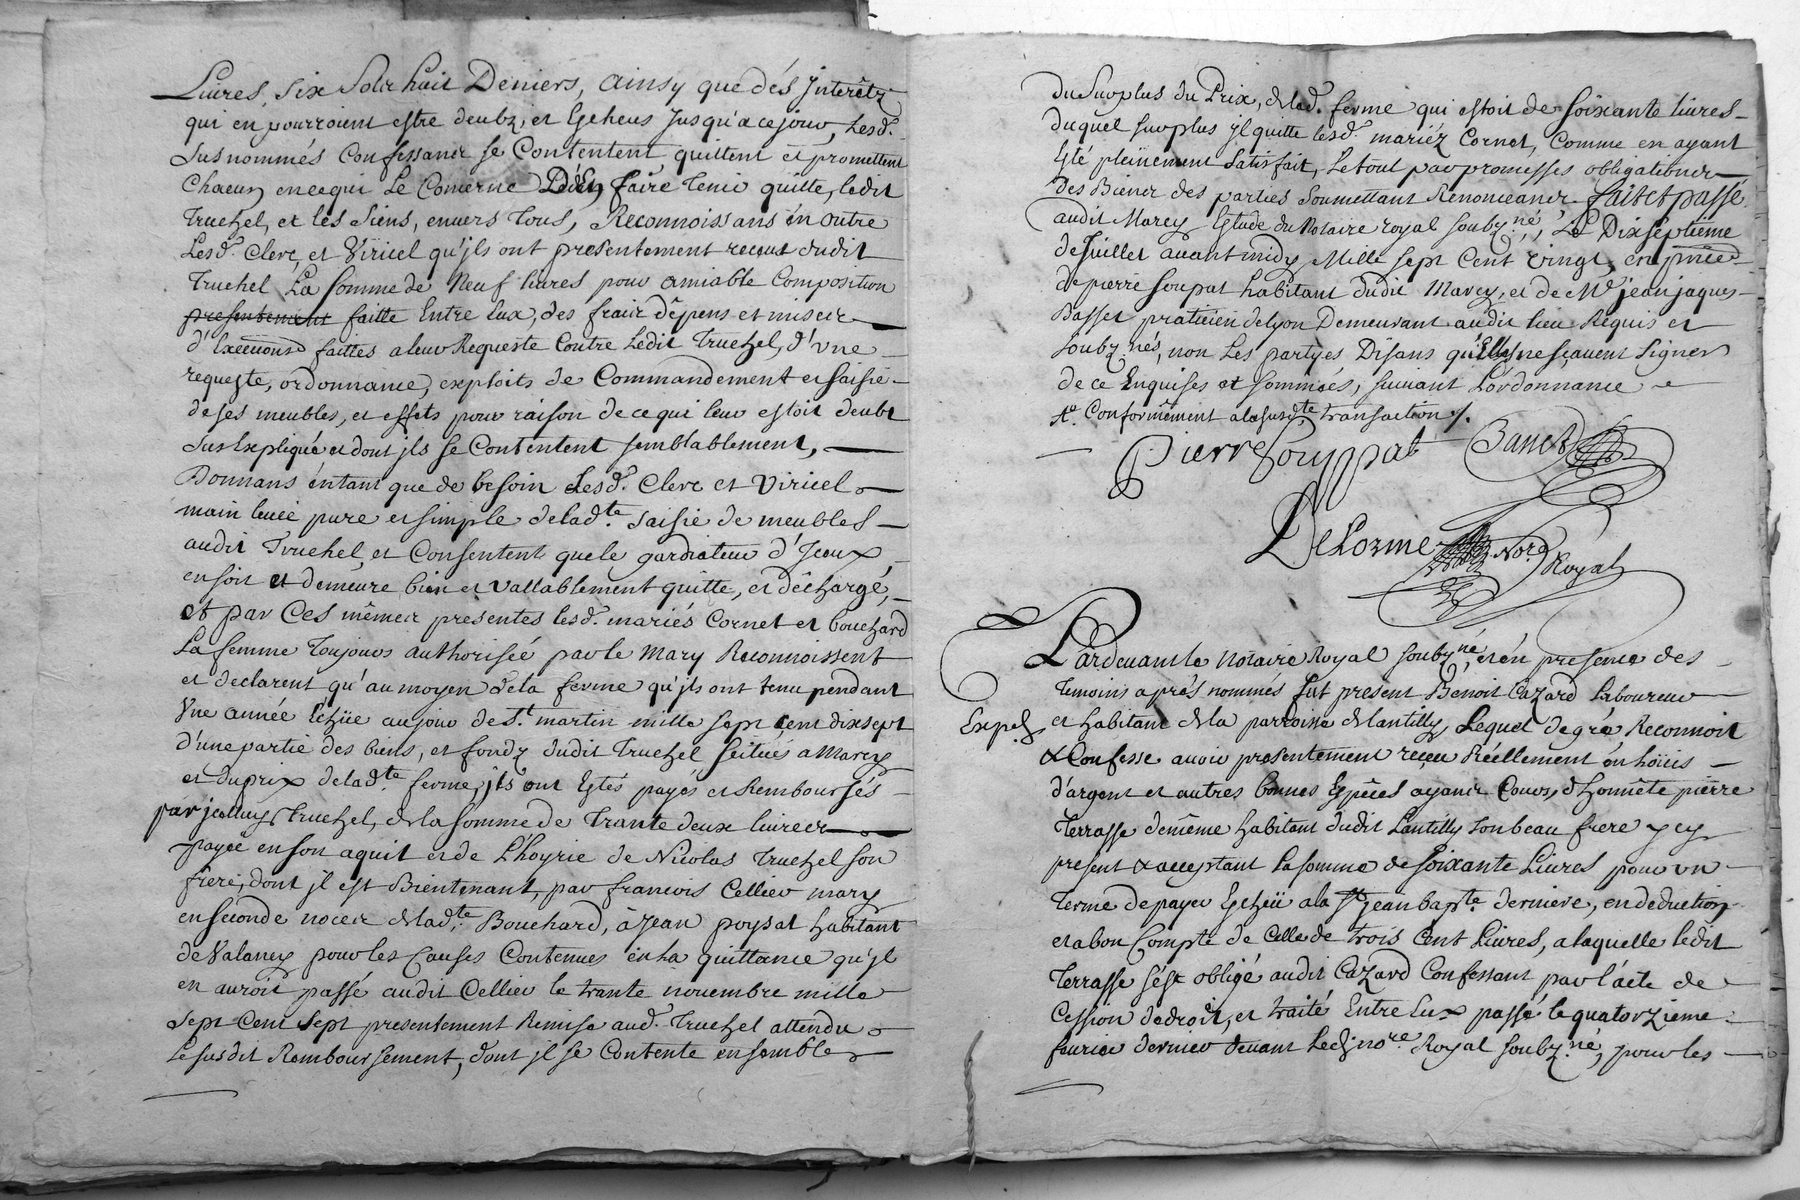 Livres, six Solz huit Deniers, ainsy que dés Jnterêtz
qui en pourroient estre deubz, et Echeus Jusqu'a ce jour, Lesd.
Susnommés Confessants se Contentent quittent et promettent
Chacun en ce qui Le Conserne faire tenir quitte, ledit
Truchel, et les Siens, envers tous, Reconnoissans en outre
Lesd. Clerc, et Viricel qu'jls ont presentement receus dudit
Truchel La somme de Neuf livres pour amiable Composition
presentement faitte Entre Eux, des fraix dêpens et mises
d'Execuons faittes a leur Requeste Contre Ledit Truchel, d'une
requeste, ordonnance, exploits de Commandement et saisie
de ses meubles, et effets pour raison de ce qui leur estoit deubt
Sus Expliqué et dont jls se Contentent semblablement,
Donnans éntant que de besoin Lesd. Clerc et Viricel
main levée pure et simple de lad.te saisie de meubles
audit Truchel, et Consentent que le gardiateur d'Jceux
en soit et demeure bien et vallablement quitte, et dêchargé,
et par Ces mêmes presentes lesd. mariés Cornet et bouchard
La femme toujours authorisée par le mary Reconnoissent
et declarent qu'au moyen de la ferme qu'jls ont tenu pendant
Une année Echüe au jour de St. martin mille sept cent dix sept
d'une partie des biens, et fondz dudit Truchel scitués a Marcy
et du prix de lad.te ferme, jls ont Estés payés et Remboursés
par Truchel, de la somme de trante deux livres
payée en son aquit et de L'hoyrie de Nicolas Truchel son
frere, dont jl est Bientenant, par francois Cellier mary
en seconde noces de lad.te Bouchard, à Jean poysat habitant
de Valancy pour les Causes Contenues en la quittance qu'jl
en auroit passé audit Cellier le trante novembre mille
sept Cent sept presentement Remise aud. Truchel attendu
Le susdit Remboursement, dont jl se Contente ensemble
du Surplus du Prix, de lad. ferme qui estoit de soixante livres
duquel surplus jl quitte lesd. mariéz Cornet, Comme en ayant
Esté pleinement Satisfait, Le tout par promesses obligations
des Biens des parties Soumettant Renonceans. fait et passé
audit Marcy Estude du Notaire royal soubz.né, Le Dixseptieme
de Juillet avant midy Mille sept Cent vingt, en pñce
de pierre soupat habitant dudit Marcy, et de Me. jean jaques
Basset praticien de lyon Demeurant audit lieu Requis et
soubz.nés, non Les partyes Disans qu'Elles ne sçavent signer
de ce Enquises et sommées, suivant L'ordonnance
Conformêment a la susd.te transaction ./.
Pierre Souppat
Delorme Nore. Royal
Pardevant le Notaire Royal soubz.né, et én presence des
temoins aprés nommés fut present Benoit Cazard laboureur
Exped. et habitant de la parroisse de lantilly, Lequel de gré Reconnoit
& Confesse avoir presentement reçeu Réellement én
d'argent et autres bonnes Espêces ayants Cours, d'honnête pierre
Terrasse de même habitant dudit Lantilly son beau frere jcy
present & acceptant la somme de soixante Livres pour un
terme de payer Echeü a la St jean bap.te derniere, en deduction
et a bon Compte de Celle de trois Cent Livres, a laquelle ledit
Terrasse s'est obligé audit Cazard Confessant par l'acte de
Cession de droit, et traité Entre Eux passé le quatorzieme
fevrier dernier devant Led. nore Royal soubz.né, pour les